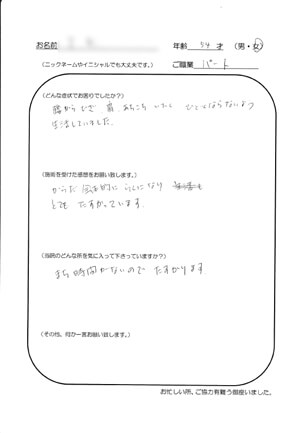 お名前
年齢 54 才 (男・女)
(ニックネームやイニシャルでも大丈夫です。)
ご職業 パート
(どんな症状でお困りでしたか?)
腰から ひざ 肩 あちこち いたく ひどくならないよう
生活していました。
(施術を受けた感想をお願い致します。)
からだ 全体的に らくになり
とても たすかっています。
(当院のどんな所を気に入って下さっていますか?)
まち時間がないので たすかります
(その他、何か一言お願い致します。)
お忙しい所、ご協力有難う御座いました。